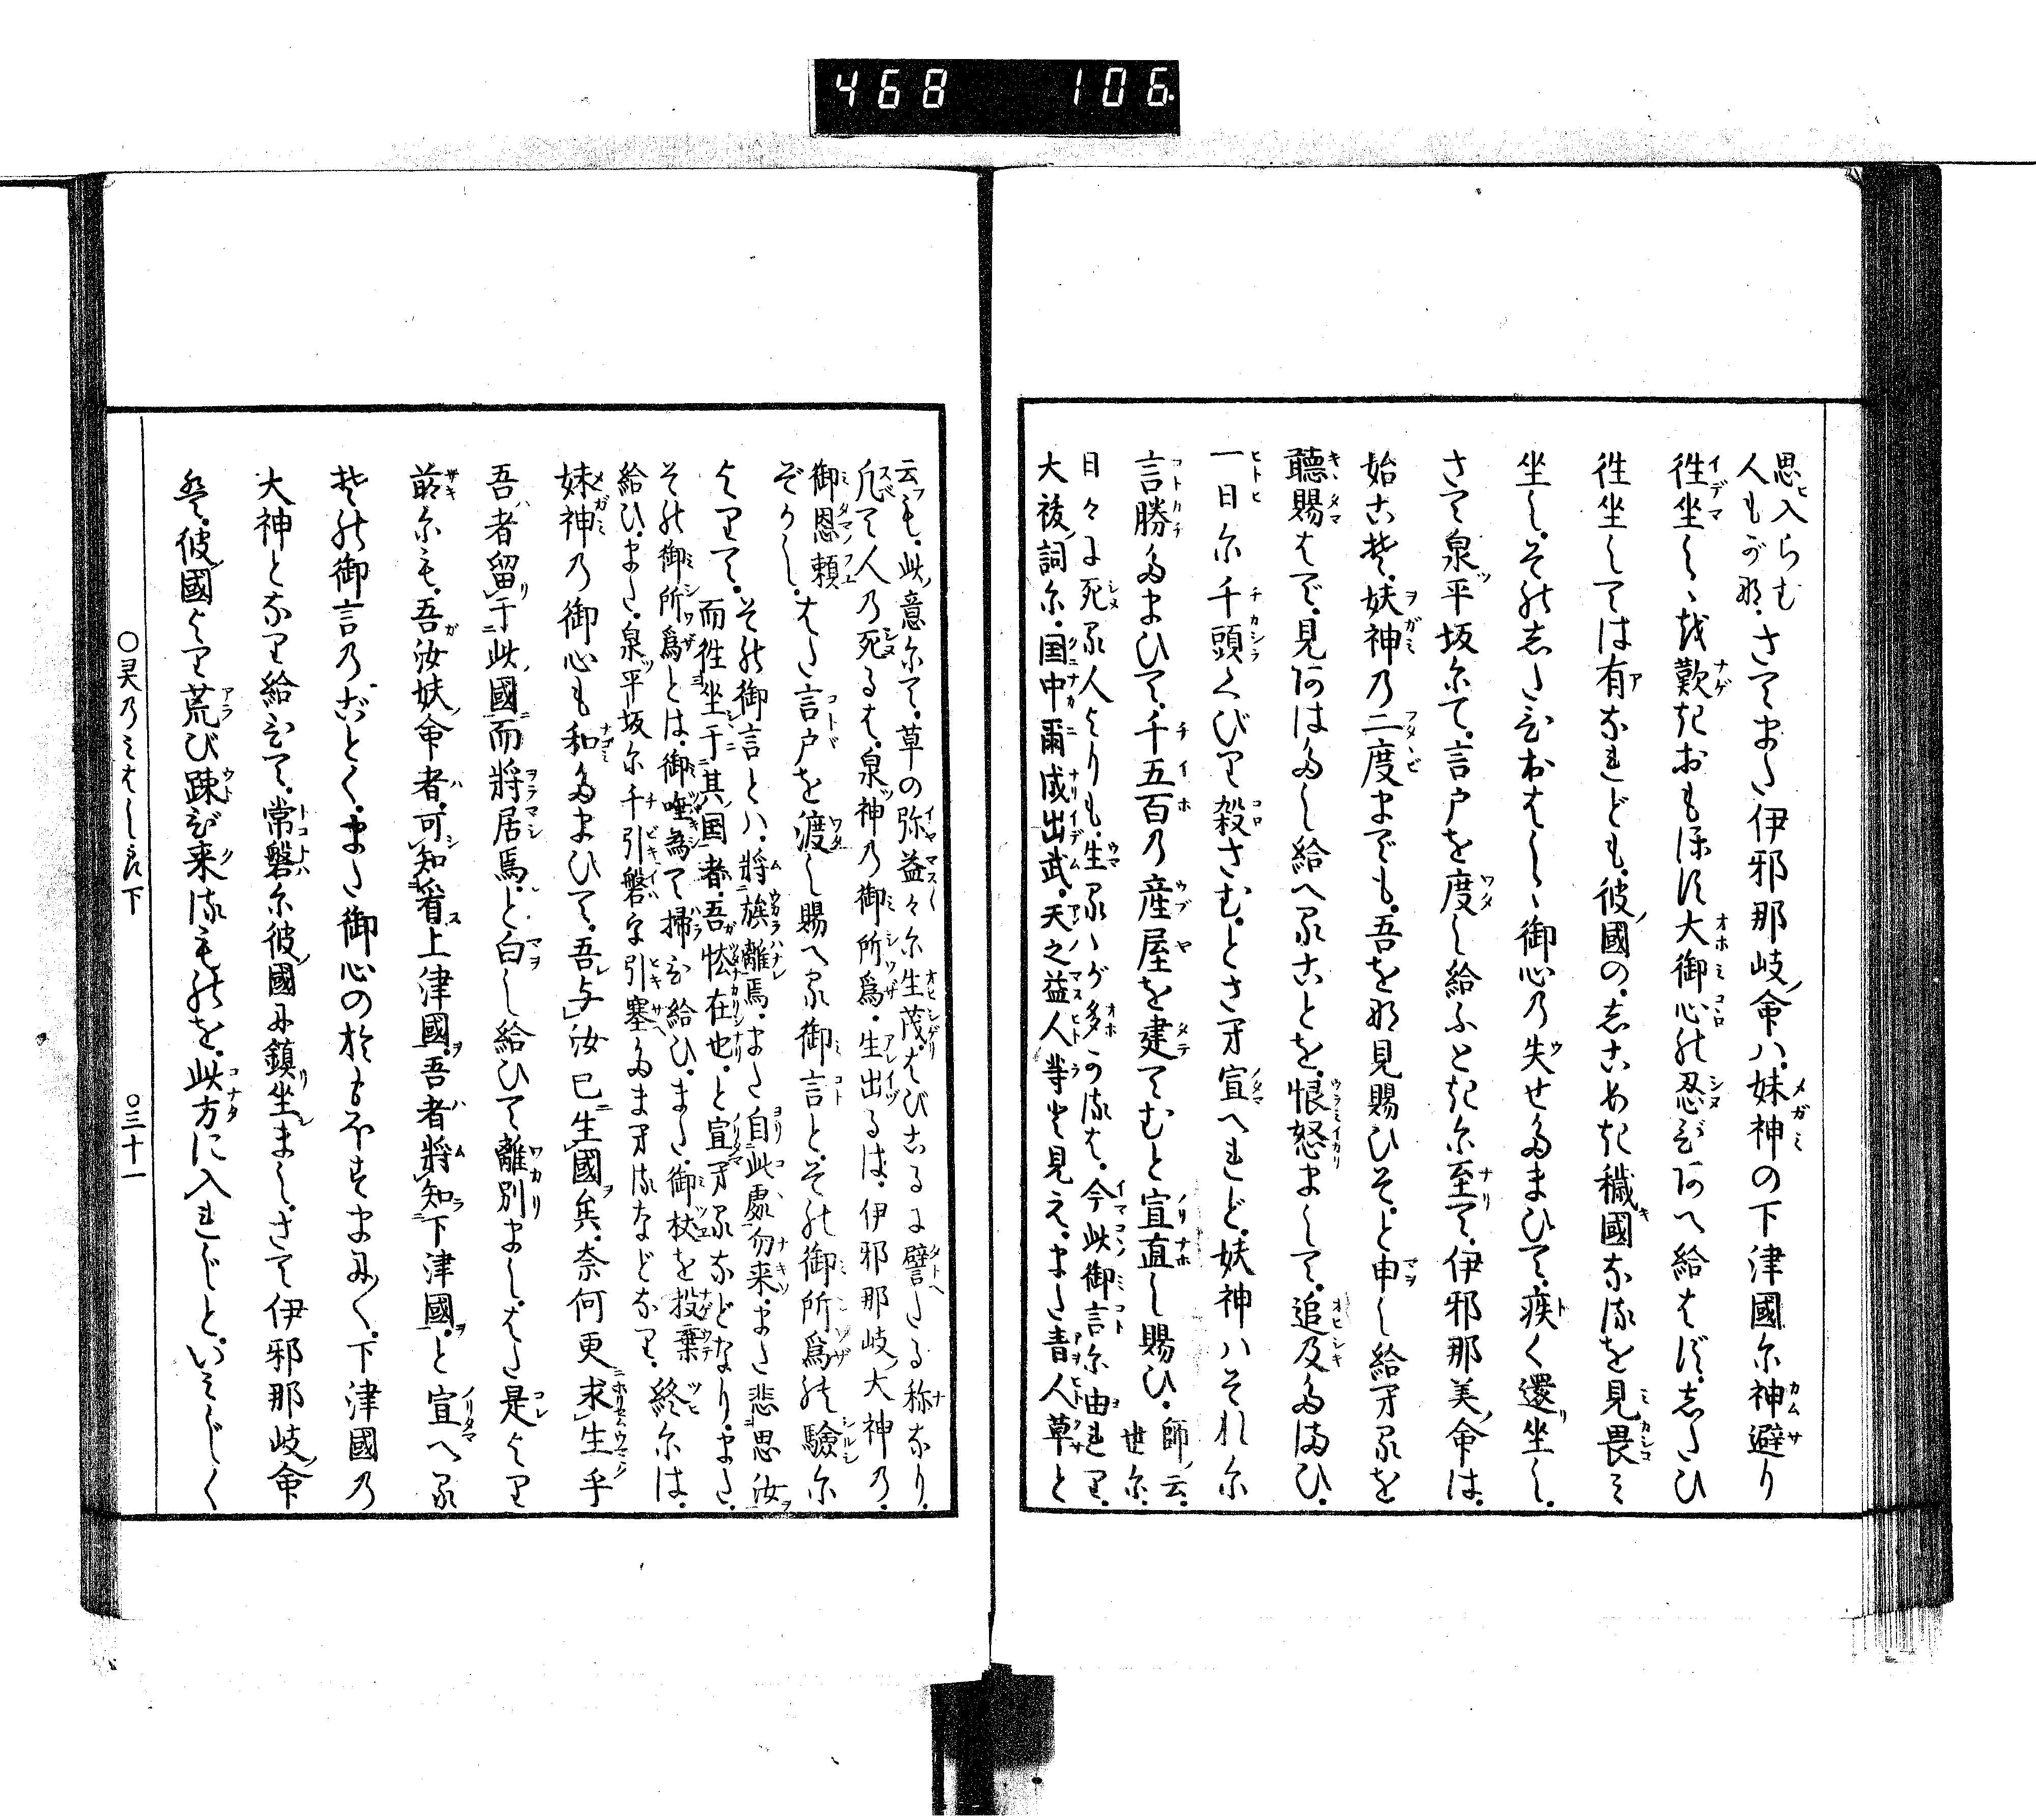 468 106
思ひ入らむ
人もがな。さてまた伊邪那岐命ハ。妹神の下津國尓神避り
往坐しゝ越歎きおもほす大御心の忍びあへ給はず。志たひ
往坐しては有なれども。彼國の。志こめき穢國なるを見畏ミ
坐し。その志たひおはしゝ御心乃失せたまひて。疾く還坐し。
さて泉平坂尓て。言戸を度し給ふときに至て。伊邪那美命は。
始こそ。妖神乃二度までも。吾をな見賜ひそ。と申し給けるを
聽賜はで。見あはたし給へることを。恨怒まして。追及たまひ。
一日尓千頭くびり殺さむ。とさへ宣へれど。妖神ハそれに
言勝たまひて。千五百乃産屋を建てむと宣直し賜ひ。師云。世尓。
日々に死る人よりも。生るゝが多かるは。今此御言尓由れり。
大祓詞尓。国中爾成出武。天之益人等と見え。また青人草と
云も。此意尓て。草の弥益々尓生茂はびこるに譬たる称なり。
凡て人乃死るは。泉神乃御所爲。生出るは。伊邪那岐大神乃。
御恩頼
ぞかし。はた言戸を渡し賜へる御言と。その御所爲の驗尓
よりて。その御言とハ。將族離焉。また自此處勿来。また悲思汝
而往坐于其国者。吾怯在也。と宣けるなどなり。また。
その御所爲とは。御唾為て掃ひ給ひ。また。御杖を投棄
給ひ。また。泉平坂尓千引磐を引塞たまけるなどなり。終尓は。
妹神乃御心も和たまひて。吾与汝已生國矣。奈何更求生乎
吾者留于此國而將居焉。と白し給ひて離別まし。はた是より
前尓も。吾汝妖命者。可知看上津國。吾者將知下津國。と宣へる
その御言乃ごとく。また御心のおもほすまにまに。下津國乃
大神となり給ひて。常磐尓彼國に鎮坐まし。さて伊邪那岐命
は。彼國より荒び疎び来るものを。此方に入れじと。いミじく
○㚑乃ミはしら下 ○三十一